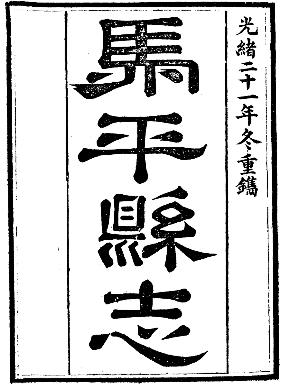 光緒二十一年冬重鐫
馬平縣志